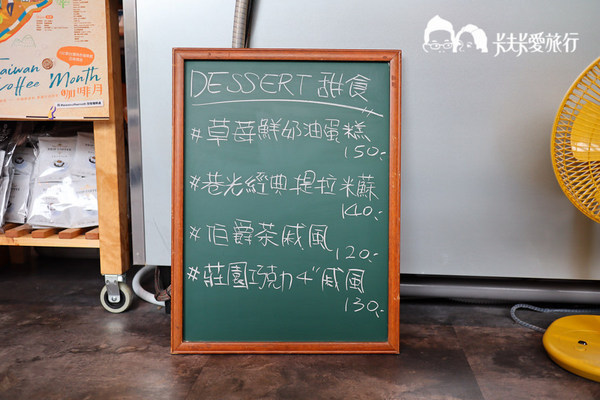 卡夫卡愛旅行
Taiwan
Coffee Month
咖啡月
DESSERT 甜食
#草莓鮮奶油蛋糕
150.-
#巷光經典提拉米蘇
140.-
#伯爵茶戚風
120.-
#莊園巧克力4"戚風
130.-